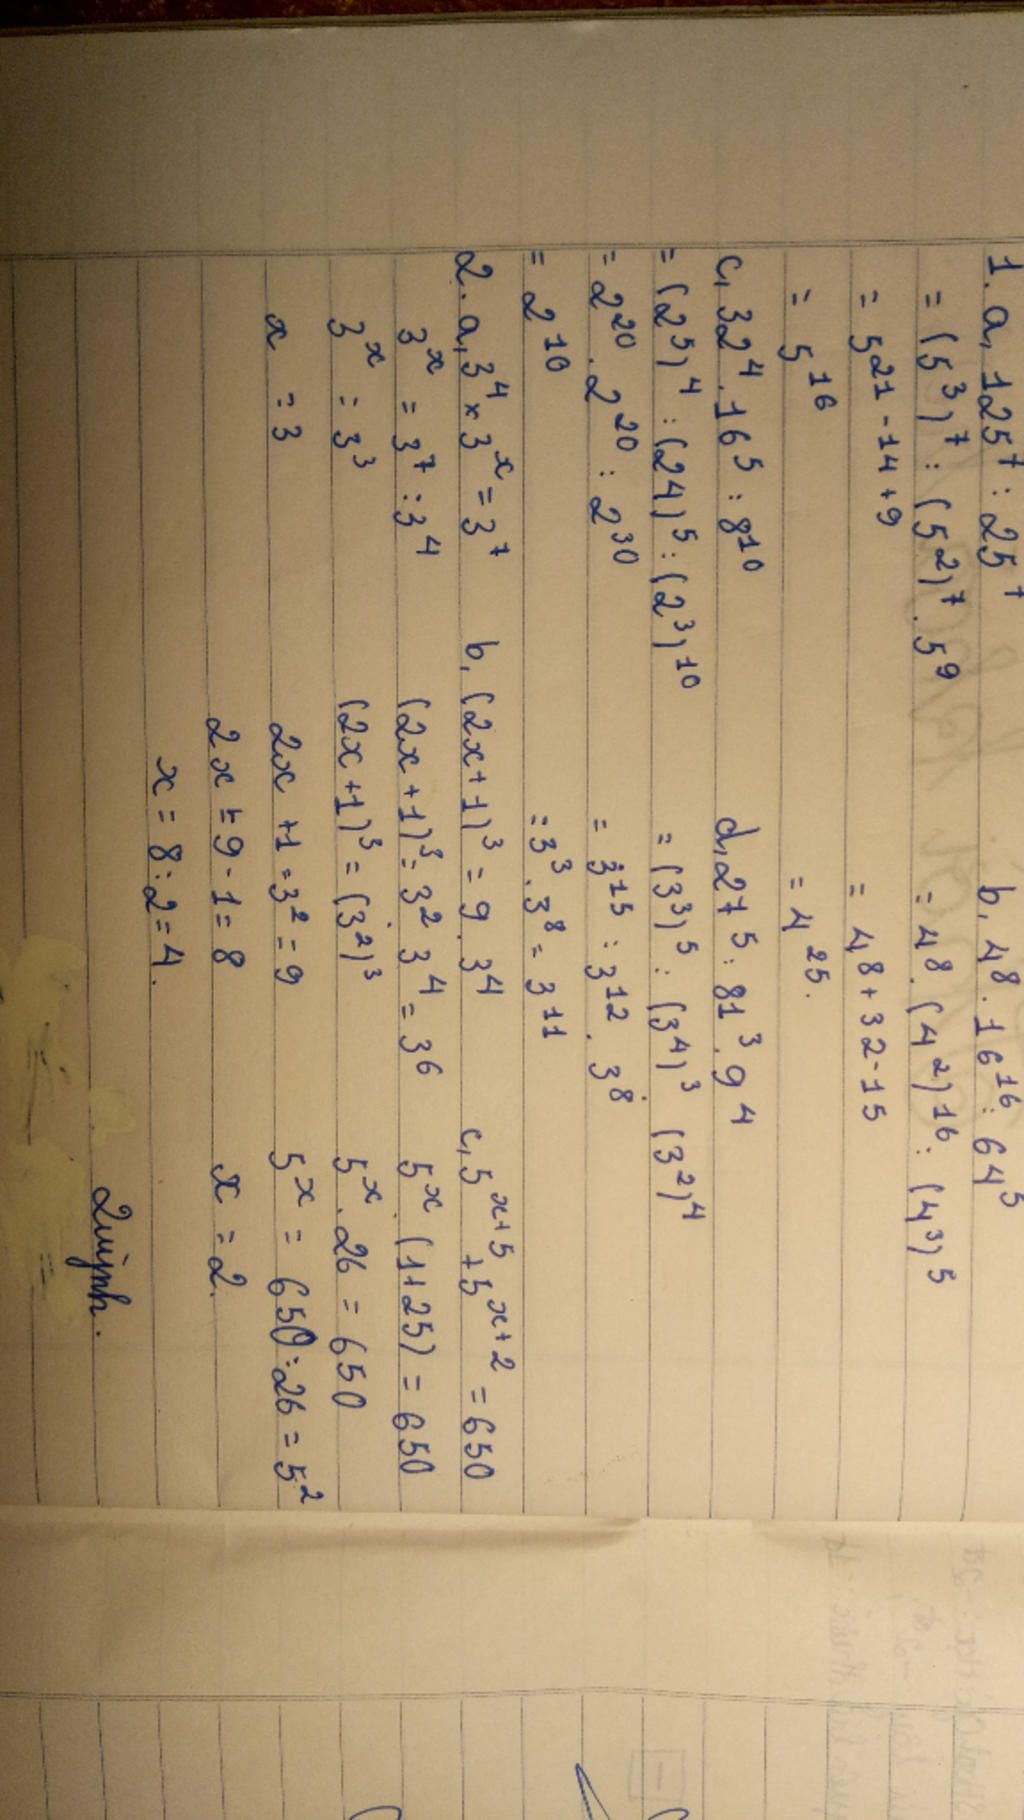 1. a, 125⁷ : 25⁷
= (5³)⁷ : (5²)⁷ . 5⁹
= 5²¹⁻¹⁴⁺⁹
= 5¹⁶
b, 4⁸ . 16¹⁶ : 64⁵
= 4⁸ . (4²)¹⁶ : (4³)⁵
= 4⁸⁺³²⁻¹⁵
= 4²⁵.
c, 32⁴ . 16⁵ : 8¹⁰
= (2⁵)⁴ : (24)⁵ : (2³)¹⁰
= 2²⁰ . 2²⁰ : 2³⁰
= 2¹⁰
d, 27⁵ : 81³ . 9⁴
= (3³)⁵ : (3⁴)³ (3²)⁴
= 3¹⁵ : 3¹² . 3⁸
= 3³ . 3⁸ = 3¹¹
2. a, 3⁴ × 3ˣ = 3⁷
3ˣ = 3⁷ : 3⁴
3ˣ = 3³
x = 3
b, (2x+1)³ = 9 . 3⁴
(2x+1)³ = 3² 3⁴ = 3⁶
(2x+1)³ = (3²)³
2x+1 = 3² = 9
2x = 9-1 = 8
x = 8:2 = 4.
c, 5ˣ⁺⁵ + 5ˣ⁺² = 650
5ˣ . (1+25) = 650
5ˣ . 26 = 650
5ˣ = 650 : 26 = 5²
x = 2.
Quỳnh.